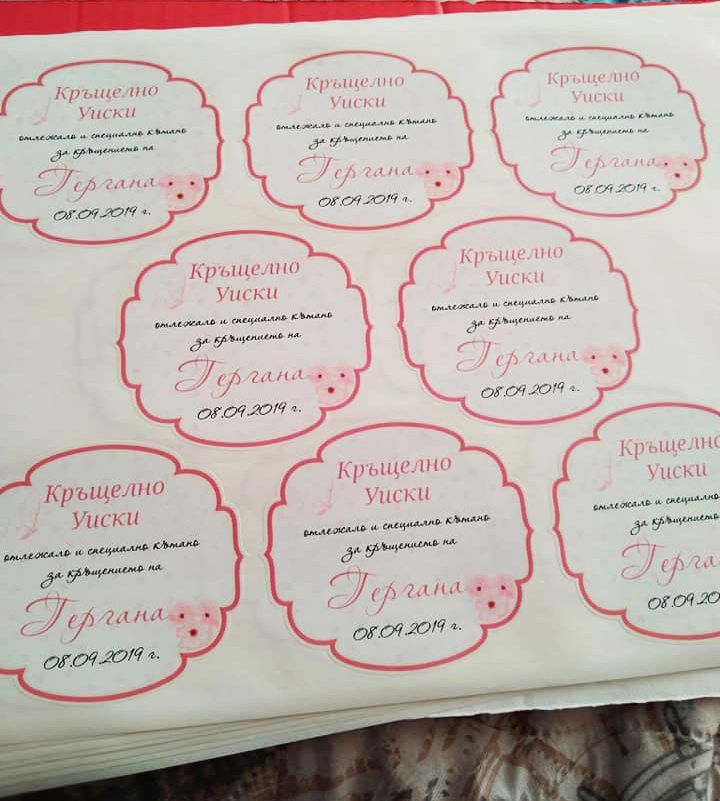 Кръщелно
Уиски
отлежало и специално кътано
за кръщението на
Гергана
08.09.2019 г.
Кръщелно
Уиски
отлежало и специално кътано
за кръщението на
Гергана
08.09.2019 г.
Кръщелно
Уиски
отлежало и специално кътано
за кръщението на
Гергана
08.09.2019 г.
Кръщелно
Уиски
отлежало и специално кътано
за кръщението на
Гергана
08.09.2019 г.
Кръщелно
Уиски
отлежало и специално кътано
за кръщението на
Гергана
08.09.2019 г.
Кръщелно
Уиски
отлежало и специално кътано
за кръщението на
Гергана
08.09.2019 г.
Кръщелно
Уиски
отлежало и специално кътано
за кръщението на
Гергана
08.09.2019 г.
Кръщелно
Уиски
отлежало и специално
за кръщението